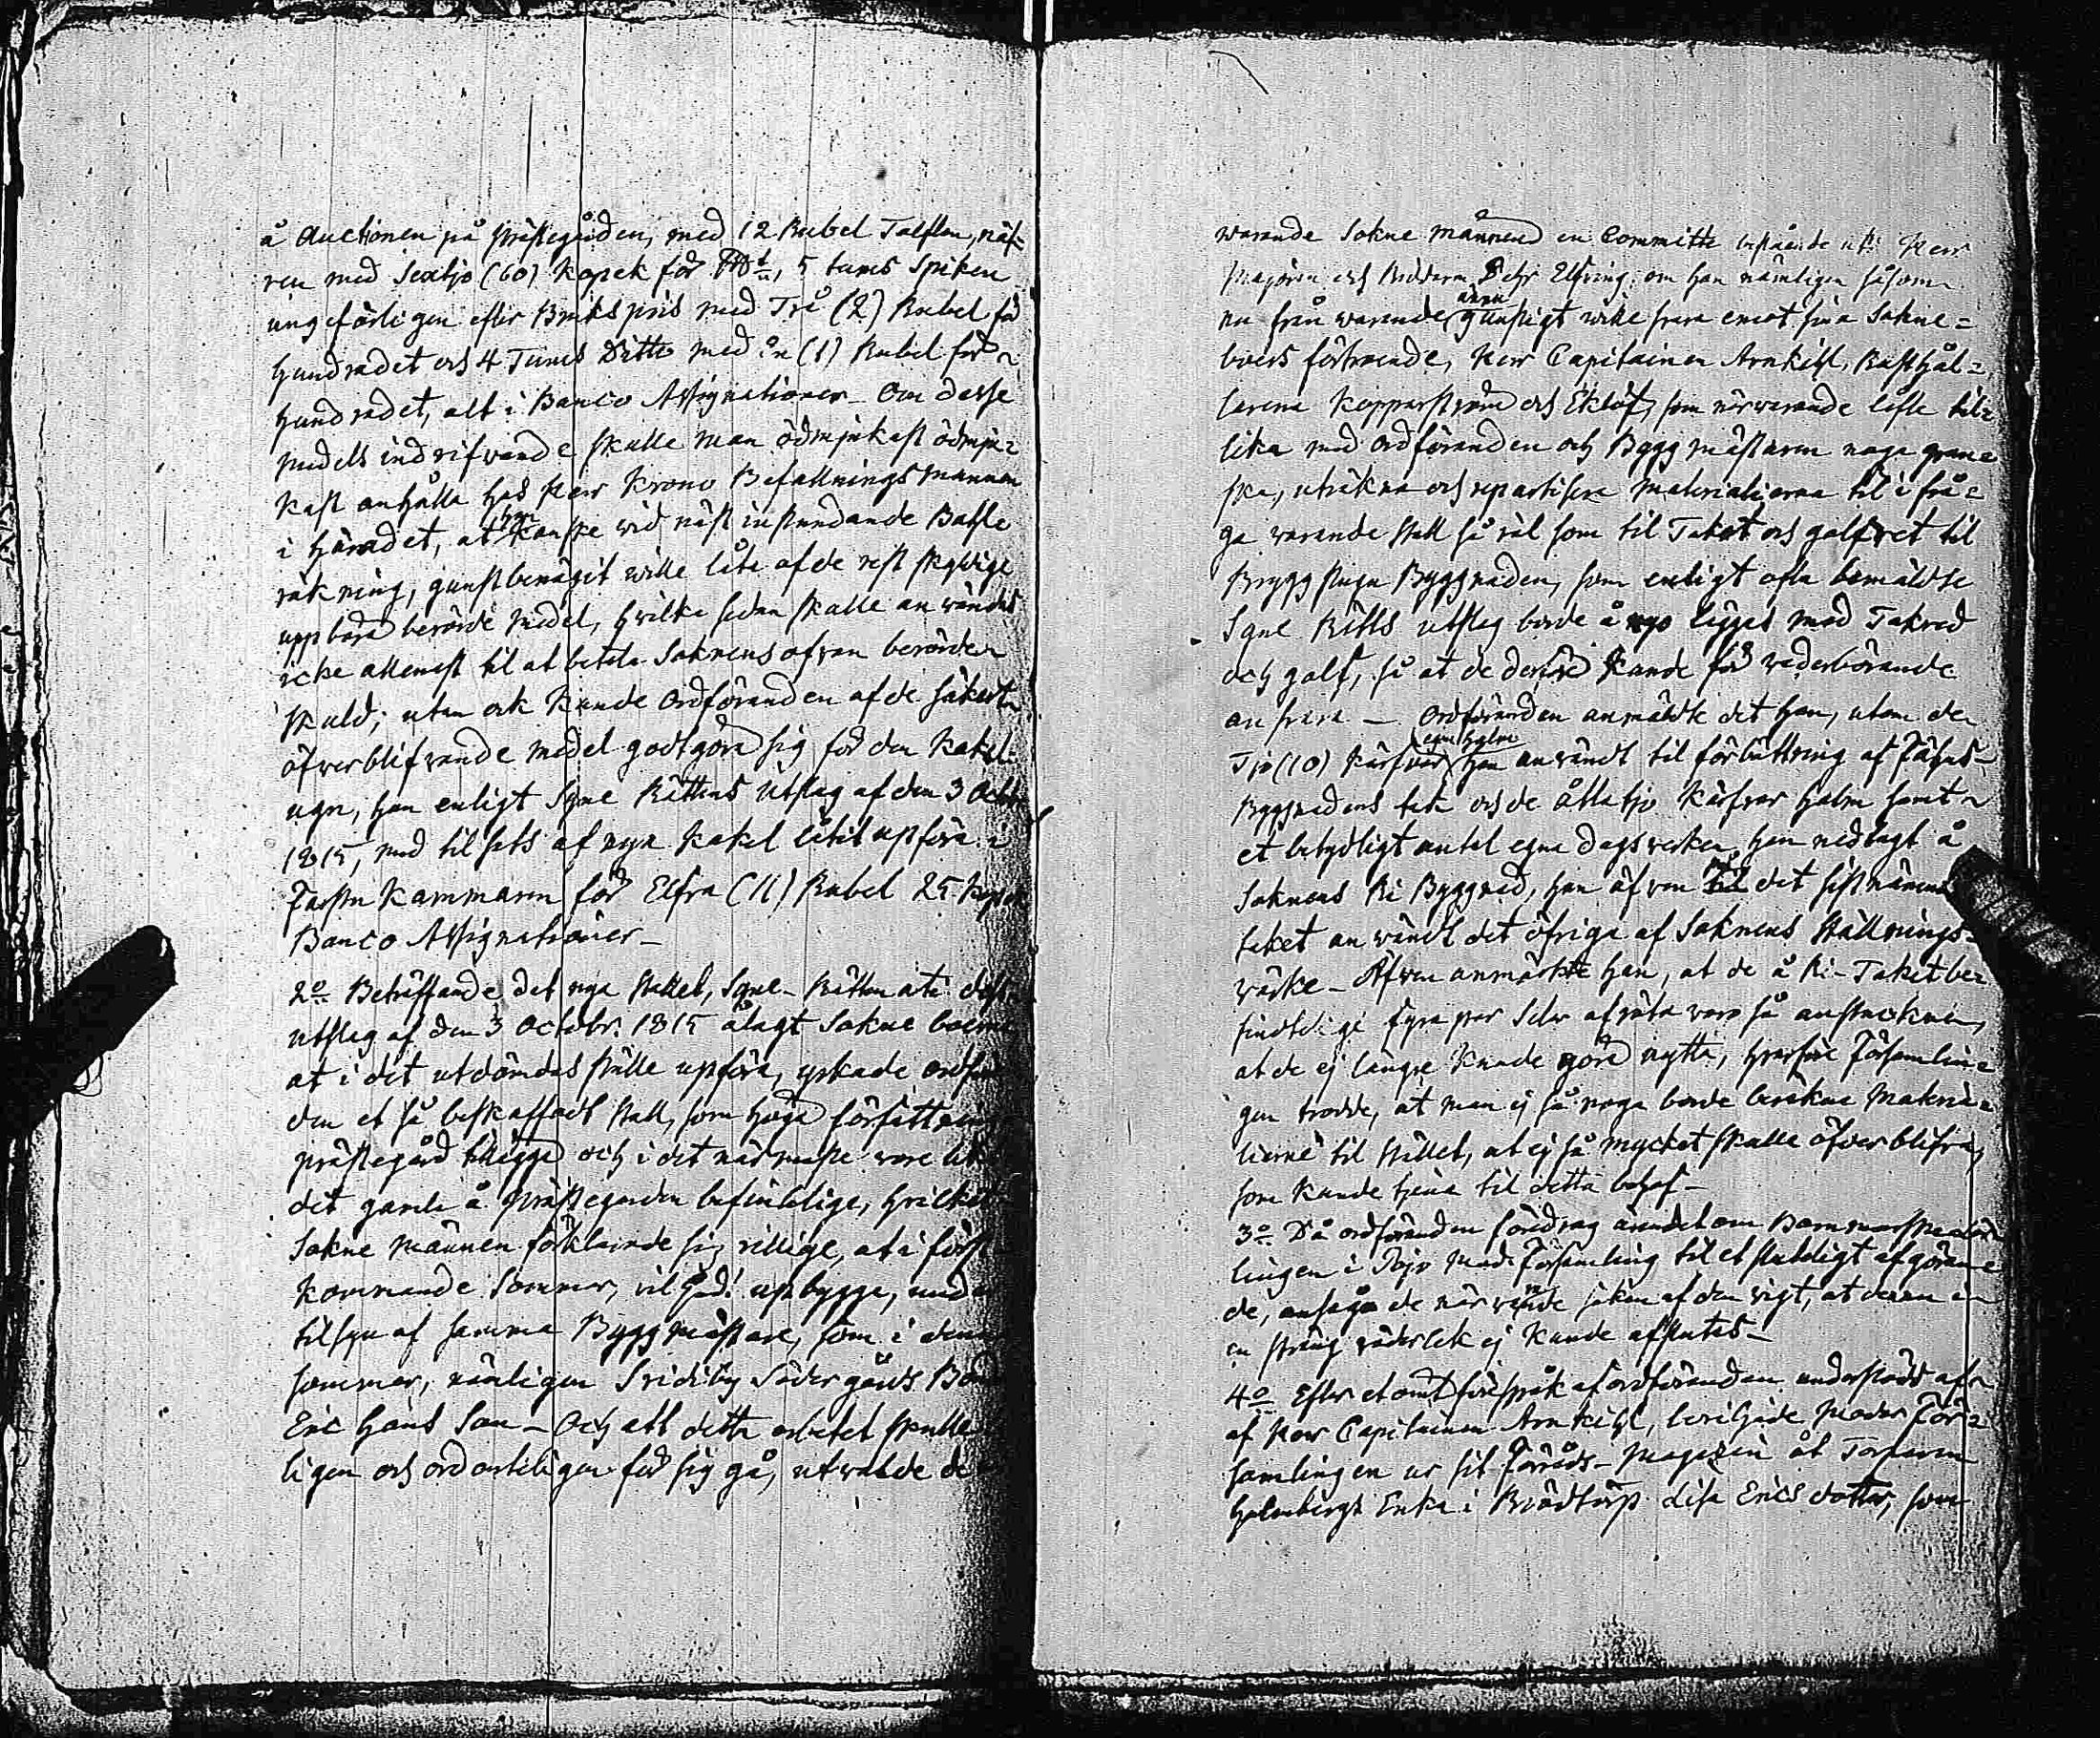 å Auctionen på Prästegården, med 12 Rubel Tolften, näf-
ren med Sextjo (60) Kopek för , 5 tums Spiken
ungefärligen efter Bruks pris med Två (2) Rubel för
hundradet och 4 Tums Ditto med en (1) Rubel för
hundradet, alt i Banco Assignationer_ Om desse
medels indrifvande skulle man ödmjukast ödmju=
kast anhålla hos Herr Krono Befallningsmannen
i Häradet, at han kanske vid näst instundande Balfle
räkning, gunstbenägit wille låta af de rest skyldige
uppbära berörde medel, hvilka sedan skulle användas
icke allenast til at betala Soknens ofvan berörde
skuld; utan ock kunde Ordföranden af de säkert
öfverblifvande medel godtgöra sig för den Kakel-
ugn, han enligt Syne Rättens Utslag af den 3 Octobr
1815, med tilsats af nya Kakel låtit upföra i
Farstu Kammaren för Elfva (11) Rubel 25 Kopek
Banco Assignationer_
2o. Beträffande det nya Stallet, Syne-Rätten uti dess
utslag af den 3 Octobr. 1815 ålagt Sokne boerna
at i det utdömdas ställe upföra, yrkade ordföran
den et så beskaffadt Stall, som höga författning
prästegård tillägga och i det närmaste vore likt
det gamla å Prästegården befintelige, hvilket
Sokne männen förklarade sig villige, at i först
kommande Sommar, vil Gud! upbygga, under
tilsyn af samma Byggmästare, som i denna
sommar, nämligen Svidiby Södergårds Bonde
Eric Hans Son_ Och att detta arbetet skulle
ligen och ordenteligen för sig gå, utvalde de
warande Sokne männend en Committé bestående uti: Herr
Majoren och Riddaren Elfving, om han nämligen såsom
nu från warande ännu gunstigt wille svara emot sina Sokne=
boers förtroende, Herr Capitainen Arnkihl, Rusthål=
larena Kopparström och Eklöf, som närvarande löfte til
lika med Ordföranden och Byggmästaren noga gran=
ska, uträkna och repartisera Materialierna til i frå=
ga varande Stall så väl som til Taket och golfvet til
Brygg stugu Byggnaden, som enligt ofta bemäldte
Syne Rätts utslag borde å nyo läggas med Takved
och golf, så at de derföre kunde för vederbörande
ansvara _ Ordföranden anmäldte det han, utom de
Tjo (10) Kärfvar egen halm han användt til förbättring af Fähus-
Byggnadens tak och de Åttatjo Kärfvar halm samt
et betydligt antal egna dagsverken han nedlagt å
Soknens Ri Byggnad, han äfven på det sistnämnda
taket användt det öfriga af Soknens Ställnings-
värke_ Äfven anmärkte han, at de å Ri-Taket be
findtelige fyra par Selar afröta voro så anstuckna,
at de ej längre kunde göra nytta, hvarföre Församlin=
gen trodde, at man ej så noga borde beräkna Materia=
lierne til Stallet, at ej så mycket skulle öfverblifva,
som kunde tjena til detta behof_
3o. Då ordföranden föredrog ämnet om
lingen i Församling til et slutligt afgöran=
de, ansågo de närvarande saken af den vigt, at denna
en sträng väderlek ej kunde afslutas_
4o. Efter et ömt förespråk af ordföranden understödt af
af Herr Capitainen Arnkihl, beviljade Moder För=
samlingen ur sit Förråds-Magazin åt Torparen
Holmbergs Enka i Brödtorp Lisa Erics dotter, som